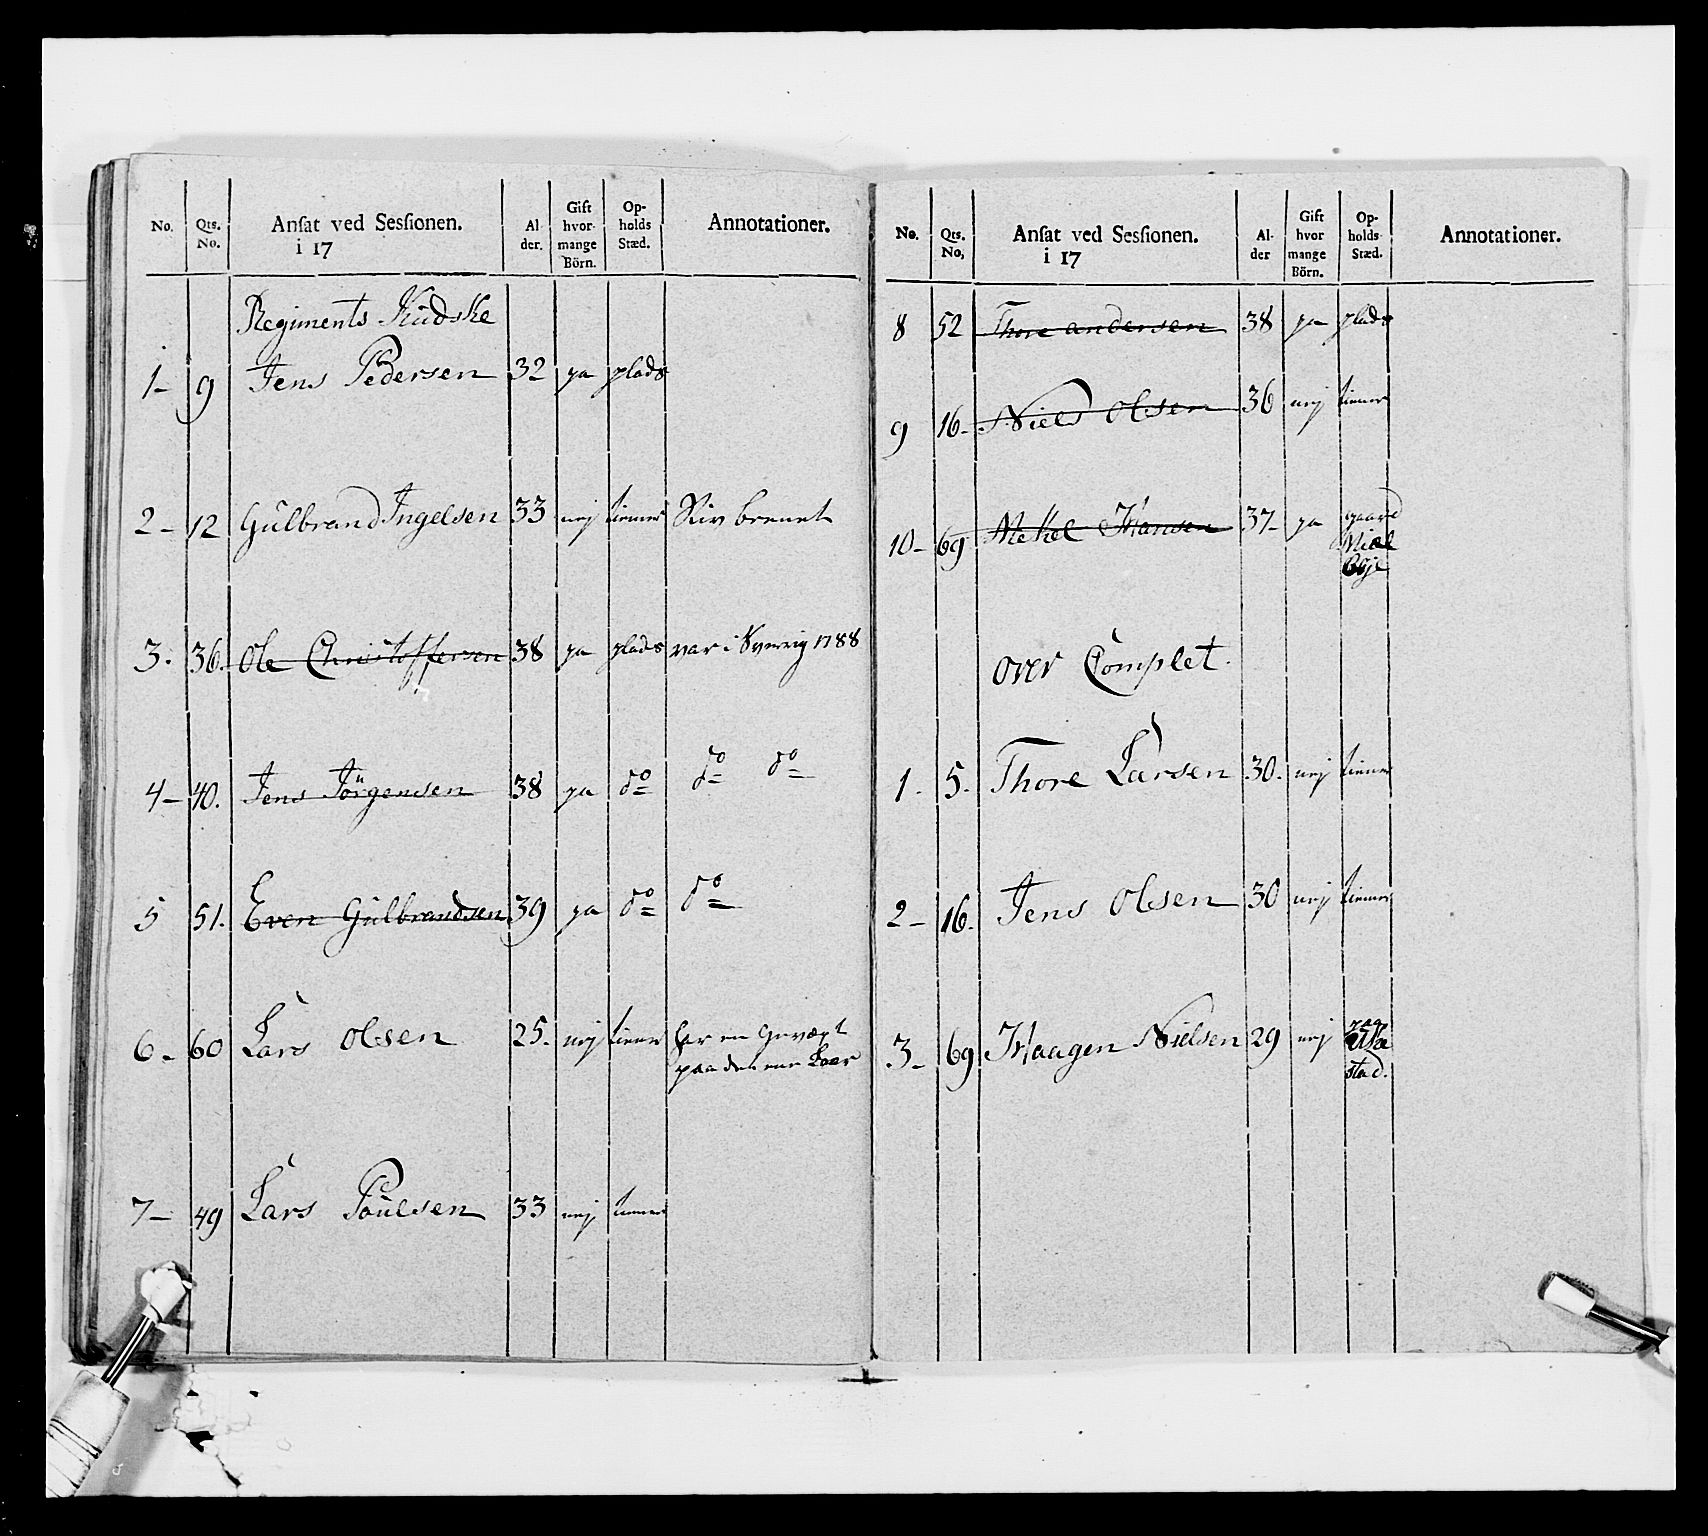 No. Qts. No. Ansat ved Sessionen. i 17 Al der. Gift hvor- mange Börn. Op- holds Stæd. Annotationer.
Regiments Kudske
1- 9 Jens Pedersen 32 ja plads
2- 12 Gulbrand Ingelsen 33 nej tiener Stiv beenet
3. 36. Ole Christoffersen 38 ja plads var i Sverrig 1788
4- 40. Jens Jörgensen 38 ja do do do
5 51. Even Gulbrandsen 39 ja do do
6- 60 Lars Olsen 25. nej tiener har en Gevæxt
paa det ene Laar
7- 49 Lars Poulsen 33 nej tiener
No. Qts. No, Ansat ved Sessionen. i 17 Al- der Gift hvor mange Börn. Op- holds- Stæd. Annotationer.
8 52 Thore andersen 38 ja plads
9 16- Niels Olsen 36 nej tiener
10- 69 Mekel Hansen 37- ja gaard
Over Complet.
1. 5. Thore Larsen 30. nej tiener
2- 16. Jens Olsen 30 nej tiener
3- 69 Haagen Nielsen 29 nej paa
stad.